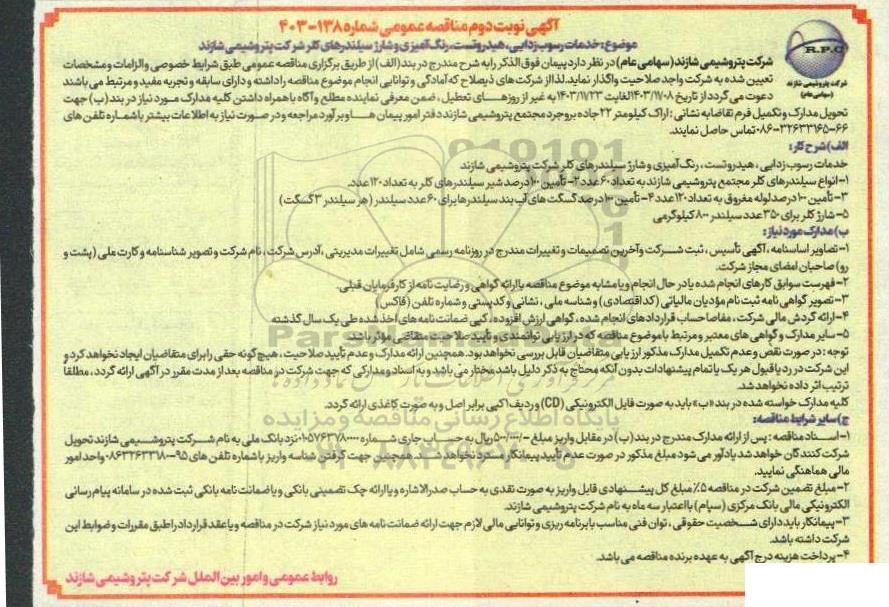 آگهی نوبت دوم مناقصه عمومی شماره ۱۳۸-۴۰۳
موضوع: خدمات رسوب زدایی، هیدروتست، رنگ آمیزی و شارژ سیلندرهای کلر شرکت پتروشیمی شازند
R.P.C
شرکت پتروشیمی شازند
(سهامی عام)
شرکت پتروشیمی شازند (سهامی عام) در نظر دارد پیمان فوق الذکر را به شرح مندرج در بند (الف) از طریق برگزاری مناقصه عمومی طبق شرایط خصوصی و الزامات و مشخصات
تعیین شده به شرکت واجد صلاحیت واگذار نماید. لذا از شرکت های ذیصلاح که آمادگی و توانایی انجام موضوع مناقصه را داشته و دارای سابقه و تجربه مفید و مرتبط می باشند
دعوت می گردد از تاریخ ۱۴۰۳/۱۱/۰۸ لغایت ۱۴۰۳/۱۱/۲۳ به غیر از روزهای تعطیل، ضمن معرفی نماینده مطلع و آگاه با همراه داشتن کلیه مدارک مورد نیاز در بند (ب) جهت
تحویل مدارک و تکمیل فرم تقاضا به نشانی: اراک کیلومتر ۲۲ جاده بروجرد مجتمع پتروشیمی شازند دفتر امور پیمان ها و برآورد مراجعه و در صورت نیاز به اطلاعات بیشتر با شماره تلفن های
۶۶-۳۲۶۳۳۱۶۵-۰۸۶ تماس حاصل نمایند.
الف) شرح کار:
خدمات رسوب زدایی، هیدروتست، رنگ آمیزی و شارژ سیلندرهای کلر شرکت پتروشیمی شازند
۱- انواع سیلندرهای کلر مجتمع پتروشیمی شازند به تعداد ۶۰ عدد ۲- تأمین ۱۰۰ درصد شیر سیلندرهای کلر به تعداد ۱۲۰ عدد.
۳- تأمین ۱۰۰ درصد لوله مغروق به تعداد ۱۲۰ عدد ۴- تأمین ۱۰۰ درصد گسکت های آب بند سیلندرها برای ۶۰ عدد سیلندر (هر سیلندر ۳ گسکت)
۵- شارژ کلر برای ۳۵۰ عدد سیلندر ۸۰۰ کیلوگرمی
ب) مدارک مورد نیاز:
۱- تصاویر اساسنامه، آگهی تأسیس، ثبت شرکت و آخرین تصمیمات و تغییرات مندرج در روزنامه رسمی شامل تغییرات مدیریتی، آدرس شرکت، نام شرکت و تصویر شناسنامه و کارت ملی (پشت و
رو) صاحبان امضای مجاز شرکت.
۲- فهرست سوابق کارهای انجام شده یا در حال انجام و یا مشابه موضوع مناقصه با ارائه گواهی و رضایت نامه از کارفرمایان قبلی.
۳- تصویر گواهی نامه ثبت نام مؤدیان مالیاتی (کد اقتصادی) و شناسه ملی، نشانی و کدپستی و شماره تلفن (فاکس)
۴- ارائه گردش مالی شرکت، مفاصا حساب قراردادهای انجام شده، گواهی ارزش افزوده، کپی ضمانت نامه های اخذ شده طی یک سال گذشته
۵- سایر مدارک و گواهی های معتبر و مرتبط با موضوع مناقصه که در ارزیابی توانمندی و تأیید صلاحیت متقاضی مؤثر باشد.
توجه: در صورت نقص و عدم تکمیل مدارک مذکور ارزیابی متقاضیان قابل بررسی نخواهد بود. همچنین ارائه مدارک و عدم تأیید صلاحیت، هیچ گونه حقی را برای متقاضیان ایجاد نخواهد کرد و
این شرکت در رد یا قبول هر یک یا تمام پیشنهادات بدون آنکه محتاج به ذکر دلیل باشد مختار می باشد و به اسناد و مدارکی که جهت شرکت در مناقصه بعد از مدت مقرر در آگهی ارائه گردد، مطلقا
ترتیب اثر داده نخواهد شد.
کلیه مدارک خواسته شده در بند «ب» باید به صورت فایل الکترونیکی (CD) و ردیف ۱ کپی برابر اصل و به صورت کاغذی ارائه گردد.
ج) سایر شرایط مناقصه:
۱- اسناد مناقصه: پس از ارائه مدارک مندرج در بند (ب) در مقابل واریز مبلغ -/۵۰۰/۰۰۰ ریال به حساب جاری شماره ۰۱۰۵۷۶۳۷۸۰۰۰ نزد بانک ملی به نام شرکت پتروشیمی شازند تحویل
شرکت کنندگان خواهد شد یادآور می شود مبلغ مذکور در صورت عدم تأیید پیمانکار مسترد نخواهد شد. همچنین جهت گرفتن شناسه واریز با شماره تلفن های ۹۵-۰۸۶۳۲۶۳۳۱۸۰ واحد امور
مالی هماهنگی نمایید.
۲- مبلغ تضمین شرکت در مناقصه ۵٪ مبلغ کل پیشنهادی قابل واریز به صورت نقدی به حساب صدرالاشاره و یا ارائه چک تضمینی بانکی و یا ضمانت نامه بانکی ثبت شده در سامانه پیام رسانی
الکترونیکی مالی بانک مرکزی (سپام) با اعتبار سه ماه به نام شرکت پتروشیمی شازند.
۳- پیمانکار باید دارای شخصیت حقوقی، توان فنی مناسب با برنامه ریزی و توانایی مالی لازم جهت ارائه ضمانت نامه های مورد نیاز شرکت در مناقصه و یا عقد قرارداد را طبق مقررات و ضوابط این
شرکت داشته باشد.
۴- پرداخت هزینه درج آگهی به عهده برنده مناقصه می باشد.
روابط عمومی و امور بین الملل شرکت پتروشیمی شازند